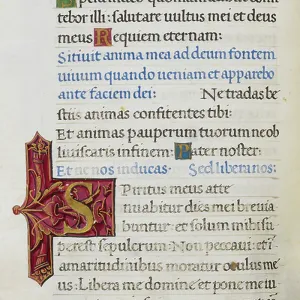 Spera in deo quoniam adhuc con
fitebor illi: salutare uultus mei et deus
meus Requiem eternam:
Sitiuit anima mea ad deum fontem
uiuum quando ueniam et apparebo
ante faciem dei: Ne tradas be
stiis animas confitentes tibi:
Et animas pauperum tuorum ne ob
liuiscaris in finem: Pater noster:
Et ne nos inducas: Sed libera nos:
Spiritus meus atte
nuabitur dies mei breuia
buntur: et solum mihi su
perest sepulcrum: Non peccaui: et in
amaritudinibus moratur oculus me
us: Libera me domine et pone me